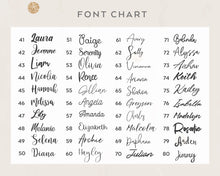 FONT CHART
41 Laura
42 Jerome
43 Liam
44 Nicolin
45 Hannah
46 Melissa
47 Lily
48 Melanie
49 Selena
50 Diana
51 Paige
52 Serenity
53 Olivia
54 Renee
55 Gillian
56 Angela
57 Amanda
58 Elizabeth
59 Archie
60 Hayley
61 Avery
62 Sally
63 Vanessa
64 Aimee
65 Shasha
66 Greyson
67 Isabel
68 Malcolm
69 Daphne
70 Julian
71 Belinda
72 Alyssa
73 Aishah
74 Keith
75 Kailey
76 Cassandra
77 Charlotte
78 Rosalie
79 Arden
80 Jenny